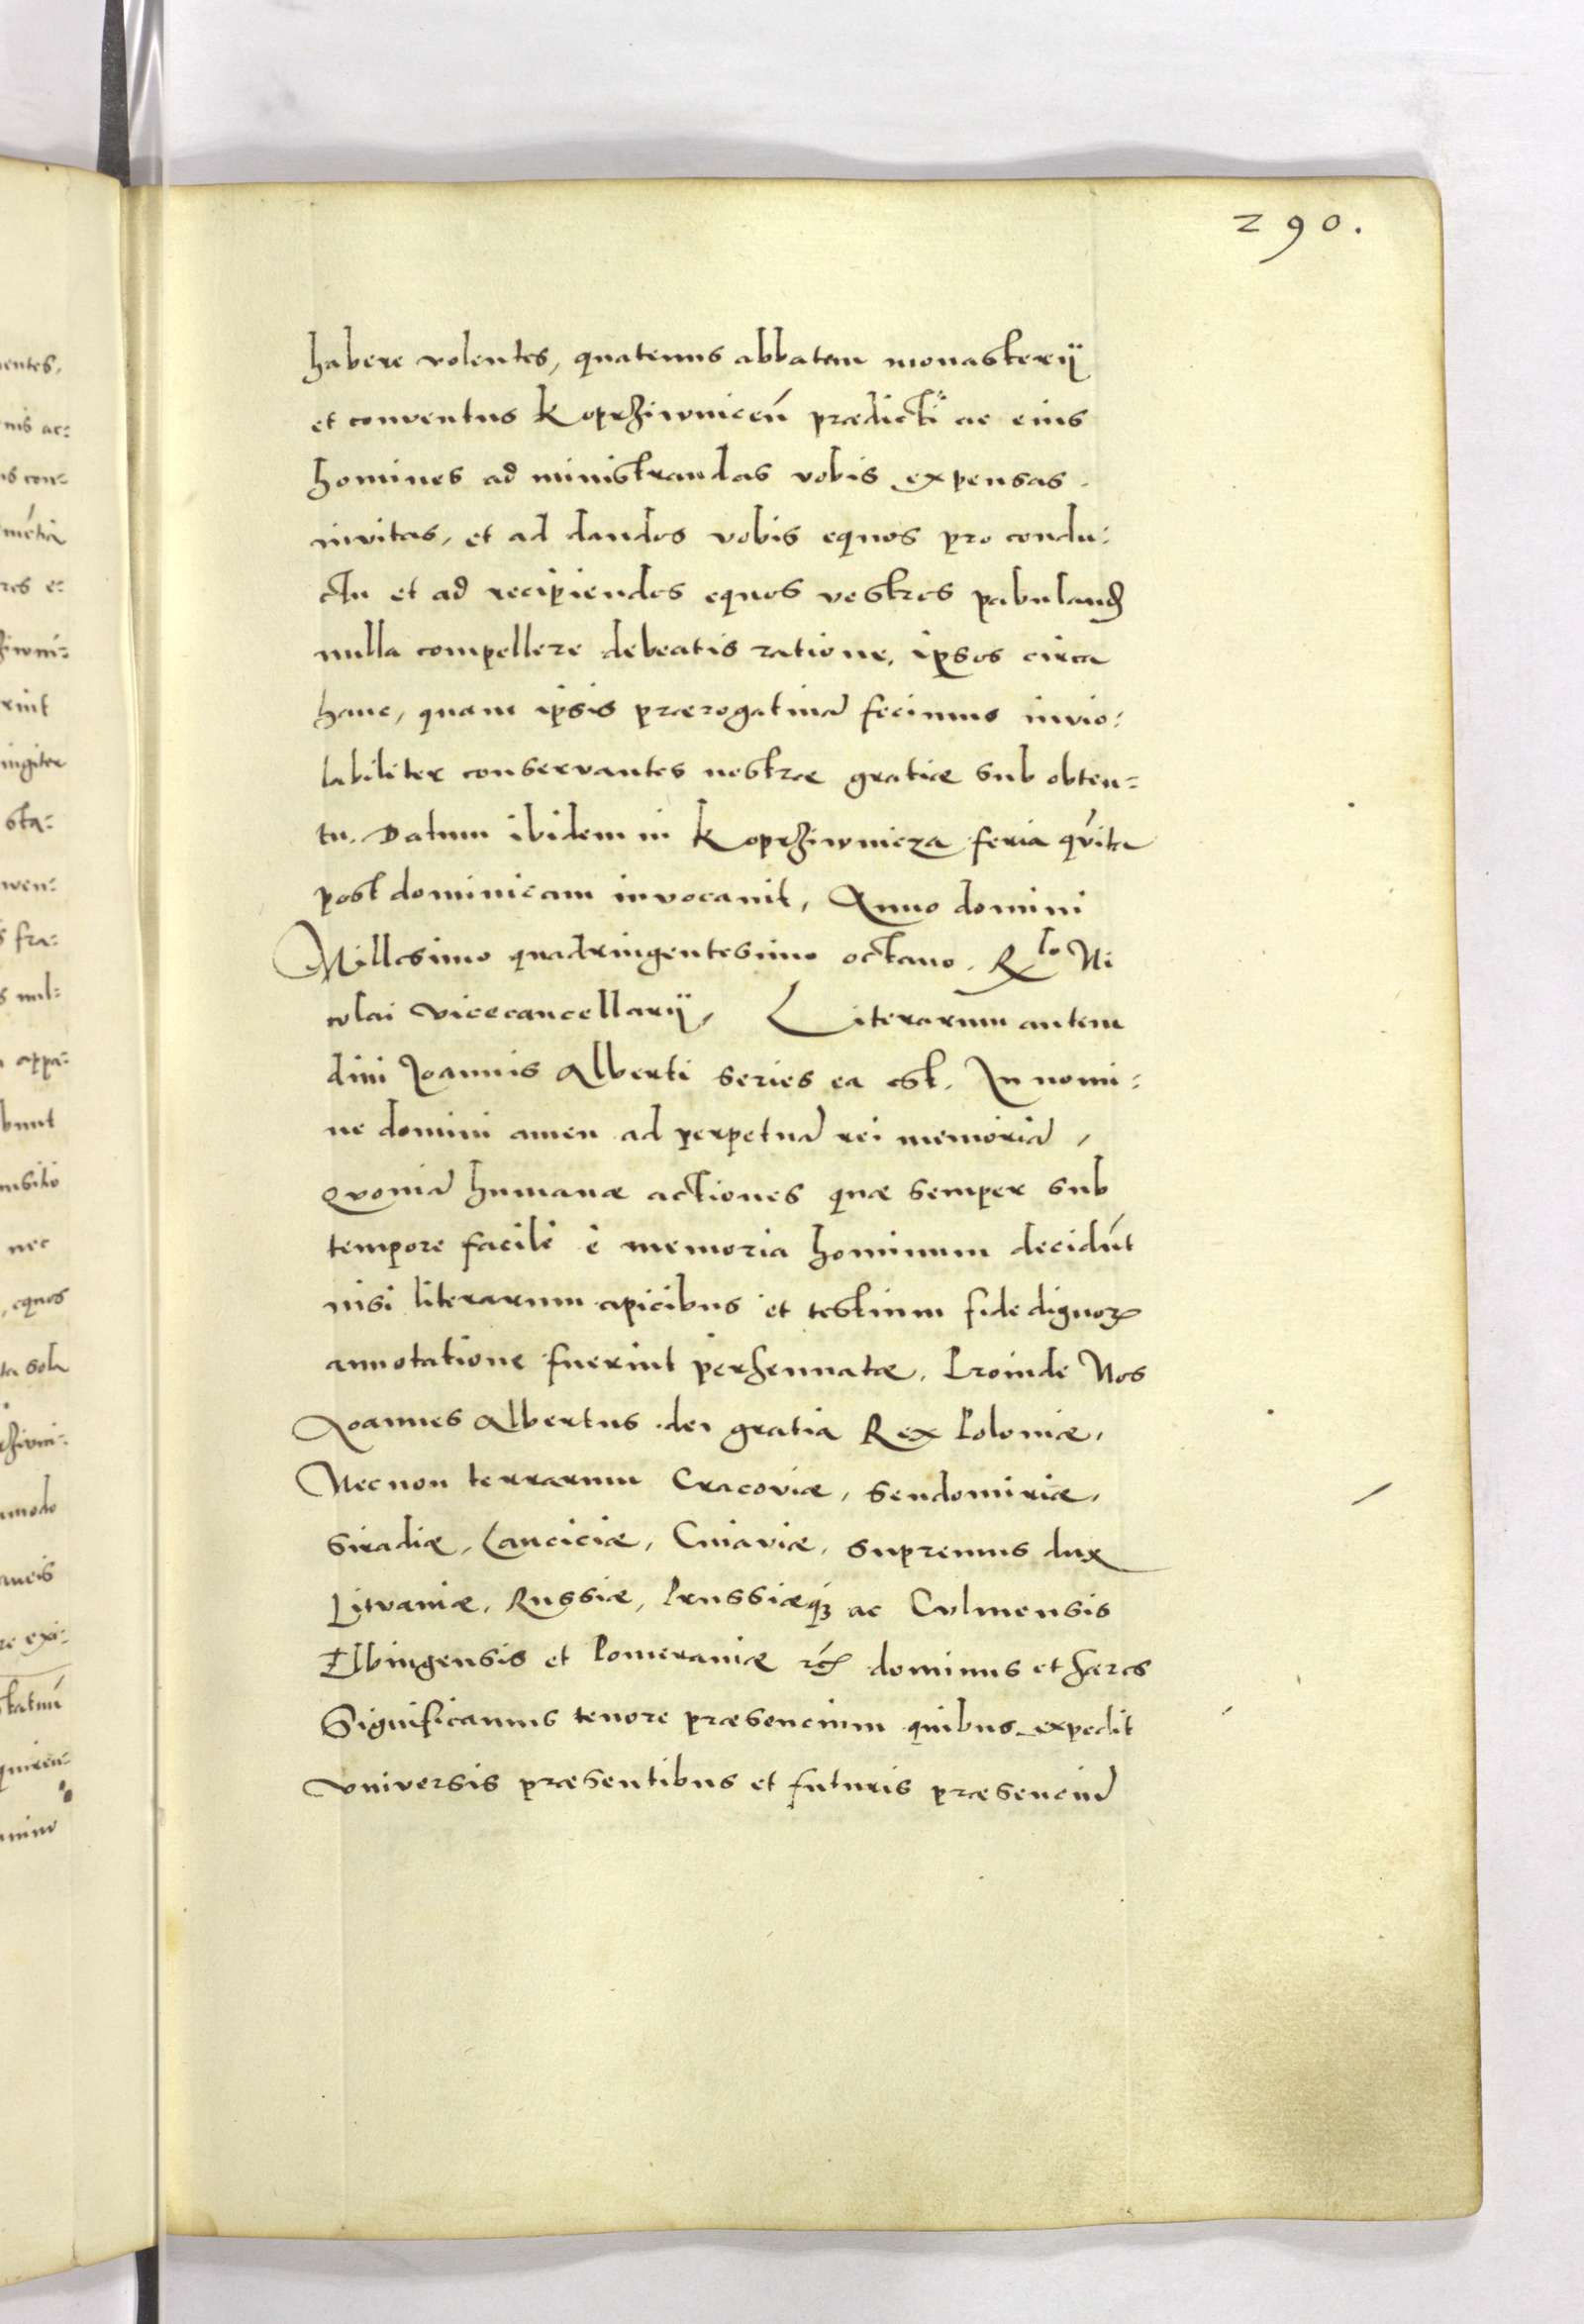 290.
habere volentes, quatenus abbatem monasterij
et conventus Koprziwniceń prædicti ac eius
homines ad ministrandas vobis expensas
invitas, et ad dandos vobis equos pro condu:
ctu et ad recipiendos equos vestros pabuland
nulla compellere debeatis ratione, ipsos circa
hanc, quam ipsis prærogatiuā fecimus invio:
labiliter conservantes nostræ gratiæ sub obten=
tu. Datum ibidem in Koprziwnicza feria q́nita
post dominicam invocauit, Anno domini
Millesimo quadringentesimo octauo. Rlo Ni
colai vicecancellarij, Literarum autem
diui Joannis Alberti series ea est. In nomi:
ne domini amen ad perpetuā rei memoriā,
Qvoniā humanæ actiones quæ semper sub
tempore facilè è memoria hominum decidūt
nisi literarum apicibus et testium fide dignoꝝ
annotatione fuerint perhennatæ. Proinde Nos
Joannes Albertus dei gratia Rex Poloniæ,
Necnon terrarum Cracoviæ, Sendomiriæ,
Siradiæ, Lanciciæ, Cuiaviæ, supremus dux
Litvaniæ, Russiæ, Prussiæq3 ac Culmensis
Elbingensis et Pomeraniæ dominus et hæres
Significamus tenore præsencium quibus expedit
vniversis præsentibus et futuris præsenciū
entes,
nis ac:
ḿetia
res e:
rint
ingiter
sta:
wen:
fra:
nul=
appa:
bunt
nsilio
nec
, equos
ta sola
modo
re exi: